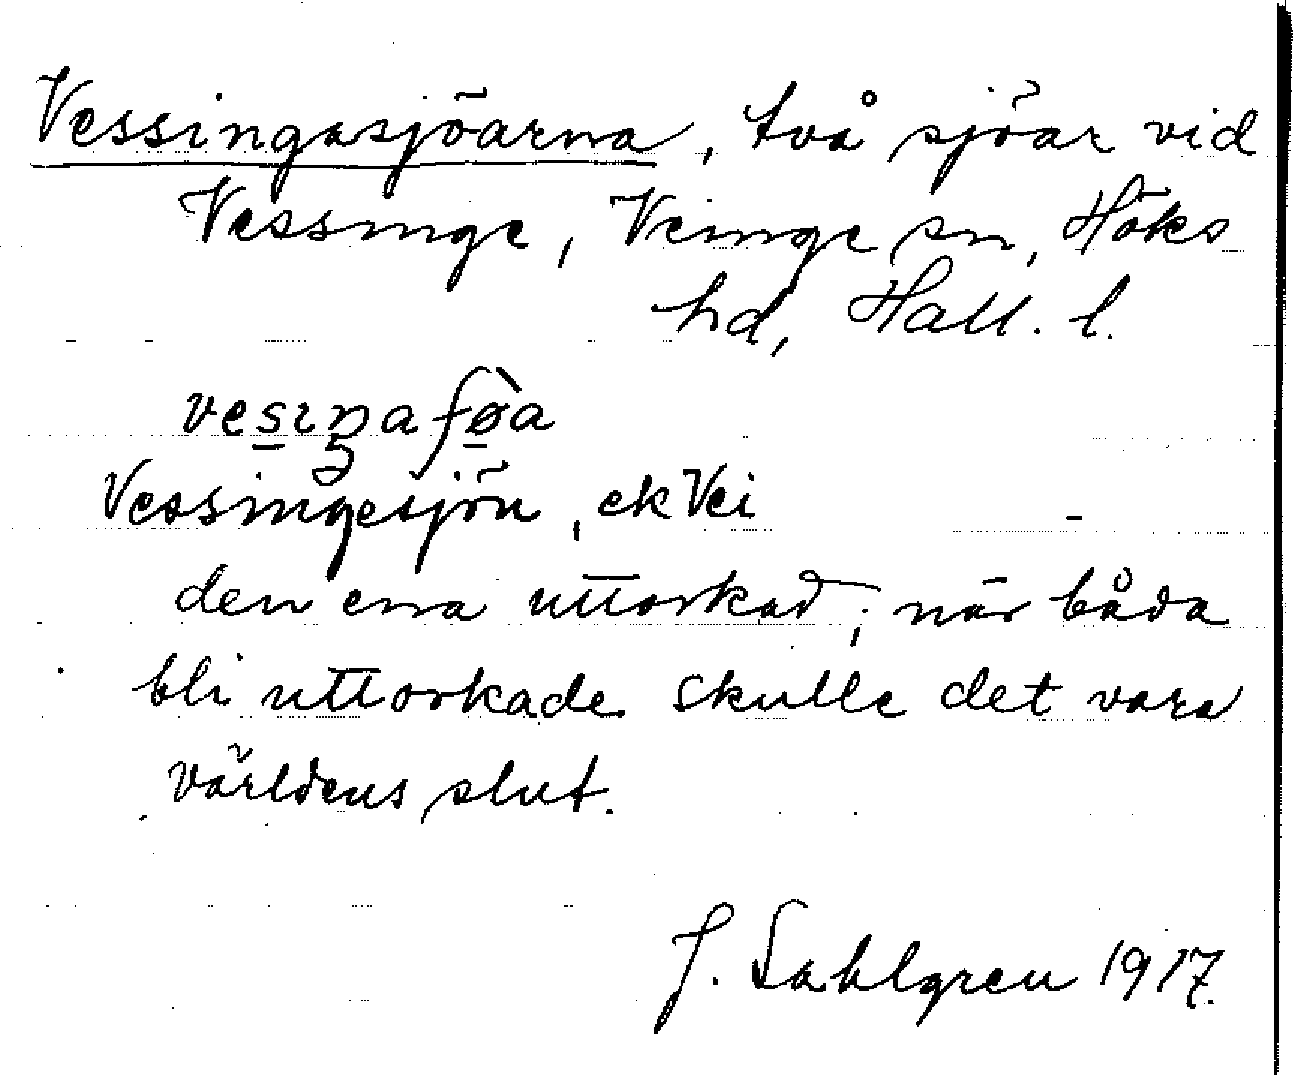 Vessingasjöarna, två sjöar vid
Vessinge, Veinge sn, Höks
hd, Hall. l.
vesiŋaʃø̀a
Vessingesjön, ek Vei
den ena uttorkad; när båda
bli uttorkade skulle det vara
världens slut.
J. Sahlgren 1917.